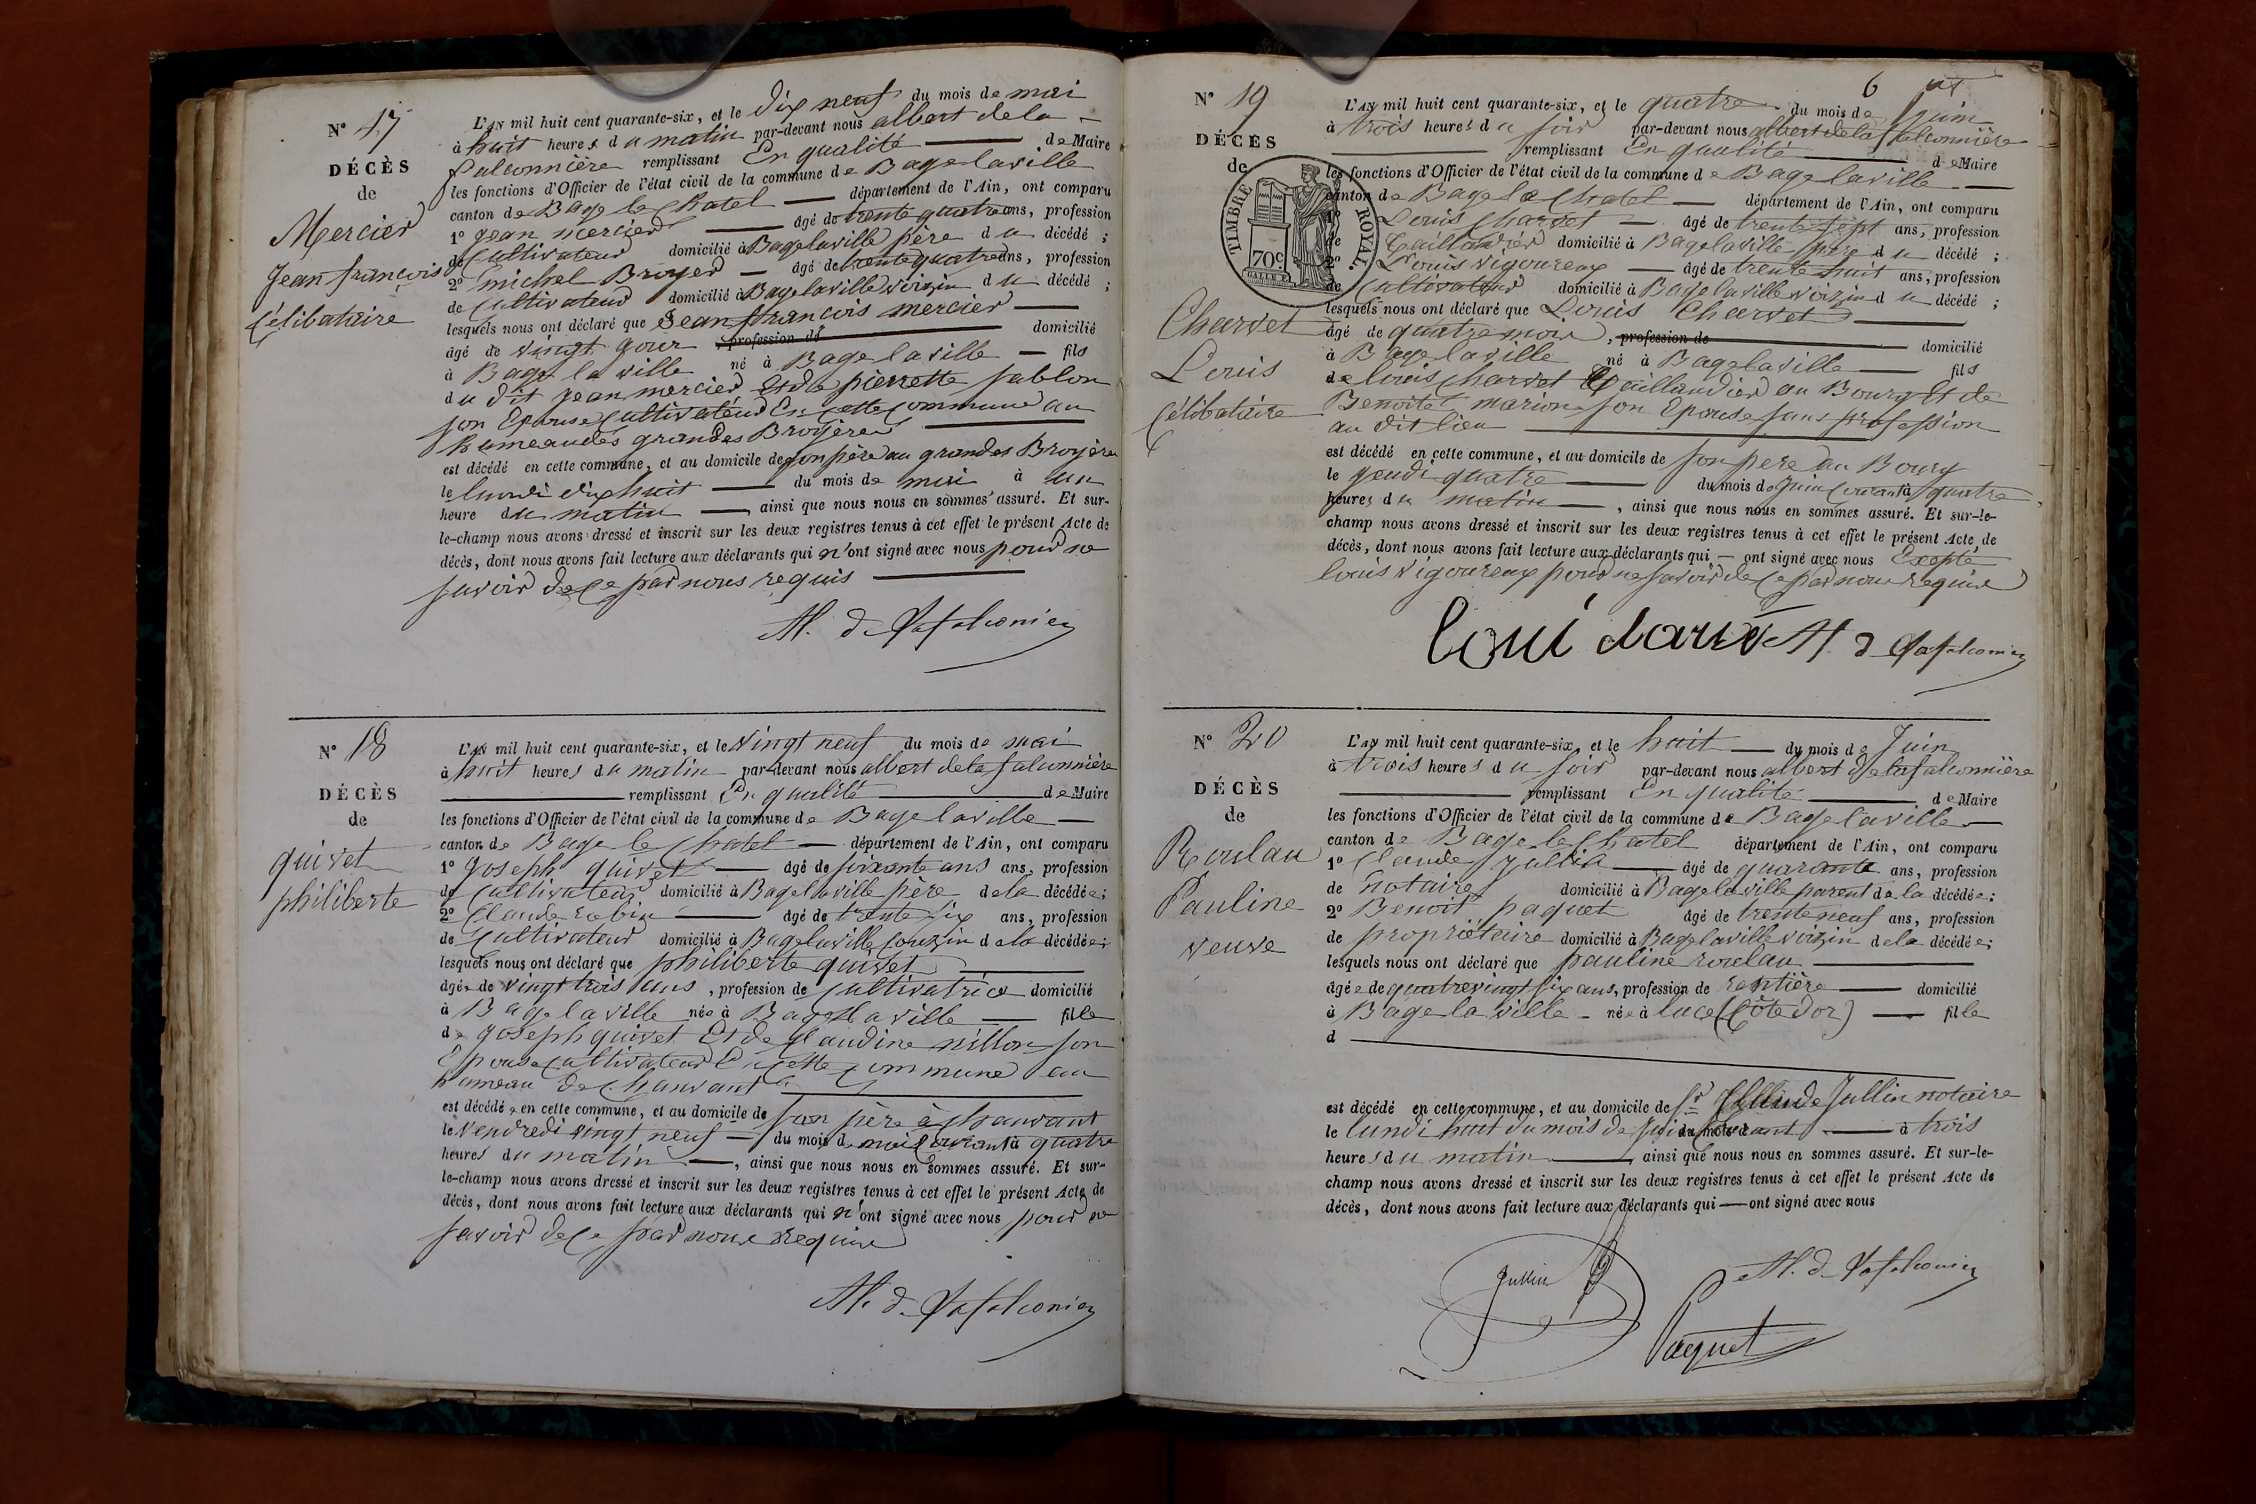 N° 17
DÉCÈS
de
Mercier
Jean françois
Célibataire
L'AN mil huit cent quarante-six, et le dix neuf du mois de mai
à huit heures du matin par-devant nous albert de la
falconnière remplissant En qualité de Maire
les fonctions d'Officier de l'état civil de la commune de Bage la ville
canton de Bage le Chatel département de l'Ain, ont comparu
1° Jean mercier âgé de trente quatre ans, profession
de Cultivateur domicilié à Bage la ville père du décédé ;
2° michel Broyer âgé de trente quatre ans, profession
de Cultivateur domicilié à Bage la ville voizin du décédé ;
lesquels nous ont déclaré que Jean françois mercier
âgé de vingt jour profession de domicilié
à Bage la ville né à Bage la ville fils
du dit jean mercier Et de pierrette fablon
son Epouse Cultivateur En Cette Commune au
hameau des grandes Broyères
est décédé en cette commune, et au domicile de son père au grandes Broyère
le lundi dix huit du mois de mai à un
heure du matin, ainsi que nous nous en sommes assuré. Et sur-
le-champ nous avons dressé et inscrit sur les deux registres tenus à cet effet le présent Acte de
décès, dont nous avons fait lecture aux déclarants qui n'ont signé avec nous pour ne
savoir de Ce par nous requis
Al. de Lafalconière
N° 18
DÉCÈS
de
quivet
philiberte
L'AN mil huit cent quarante-six, et le vingt neuf du mois de mai
à huit heures du matin par-devant nous albert de la falconnière
remplissant En qualité de Maire
les fonctions d'Officier de l'état civil de la commune de Bage la ville
canton de Bage le Chatel département de l'Ain, ont comparu
1° Joseph quivet âgé de soixante ans ans, profession
de Cultivateur domicilié à Bage la ville père de la décédée ;
2° Claude robin âgé de trente six ans, profession
de Cultivateur domicilié à Bage la ville Couzin de la décédée ;
lesquels nous ont déclaré que philiberte quivet
âgée de vingt trois ans, profession de Cultivatrice domicilié
à Bage la ville née à Bage la ville fille
de Joseph quivet Et de Claudine nillon son
Epouse Cultivateur En Cette Commune au
hameau de Chanvant
est décédée en cette commune, et au domicile de son père à Chanvant
le Vendredi vingt neuf du mois de mai Courant à quatre
heures du matin, ainsi que nous nous en sommes assuré. Et sur-
le-champ nous avons dressé et inscrit sur les deux registres tenus à cet effet le présent Acte de
décès, dont nous avons fait lecture aux déclarants qui n'ont signé avec nous pour ne
savoir de Ce par nous requis
Al. de Lafalconière
6
N° 19
DÉCÈS
de
TIMBRE ROYAL.
70c
Charvet
Louis
Célibataire
L'AN mil huit cent quarante-six, et le quatre du mois de Juin
à trois heures du soir par-devant nous albert de la falconnière
remplissant En qualité de Maire
les fonctions d'Officier de l'état civil de la commune de Bage la ville
canton de Bage le Chatel département de l'Ain, ont comparu
1° Louis Charvet âgé de trente sept ans, profession
de Taillandier domicilié à Bage la ville père du décédé ;
2° Louis vigoureux âgé de trente huit ans, profession
de Cultivateur domicilié à Bage la ville voizin du décédé ;
lesquels nous ont déclaré que Louis Charvet
âgé de quatre mois, profession de domicilié
à Bage la ville né à Bage la ville fils
de louis Charvet Taillandier au Bourg Et de
Benoitet marion son Epouse sans profession
au dit lieu
est décédé en cette commune, et au domicile de son pere au Bourg
le jeudi quatre du mois de juin Courant à quatre
heures du matin, ainsi que nous nous en sommes assuré. Et sur-le-
champ nous avons dressé et inscrit sur les deux registres tenus à cet effet le présent Acte de
décès, dont nous avons fait lecture aux déclarants qui ont signé avec nous Excepté
louis vigoureux pour ne savoir de Ce par nous requis
Al. de Lafalconière
N° 20
DÉCÈS
de
Roulau
Pauline
veuve
L'AN mil huit cent quarante-six, et le huit du mois de Juin
à trois heures du soir par-devant nous albert de lafalconnière
remplissant En qualité de Maire
les fonctions d'Officier de l'état civil de la commune de Bage la ville
canton de Bage le Chatel département de l'Ain, ont comparu
1° Claude Jullin âgé de quarante ans, profession
de notaire domicilié à Bage la ville parent de la décédée ;
2° Benoit paquet âgé de trente neuf ans, profession
de propriétaire domicilié à Bage la ville voizin de la décédée ;
lesquels nous ont déclaré que pauline roulau
âgée de quatre vingt six ans, profession de rentière domicilié
à Bage la ville née à luce (Côte d'or) fille
d
est décédé en cette commune, et au domicile de Sr Claude Jullin notaire
le lundi huit du mois de juin du mois d Courant à trois
heures du matin, ainsi que nous nous en sommes assuré. Et sur-le-
champ nous avons dressé et inscrit sur les deux registres tenus à cet effet le présent Acte de
décès, dont nous avons fait lecture aux déclarants qui ont signé avec nous
Jullin
Al. de Lafalconière
Paquet